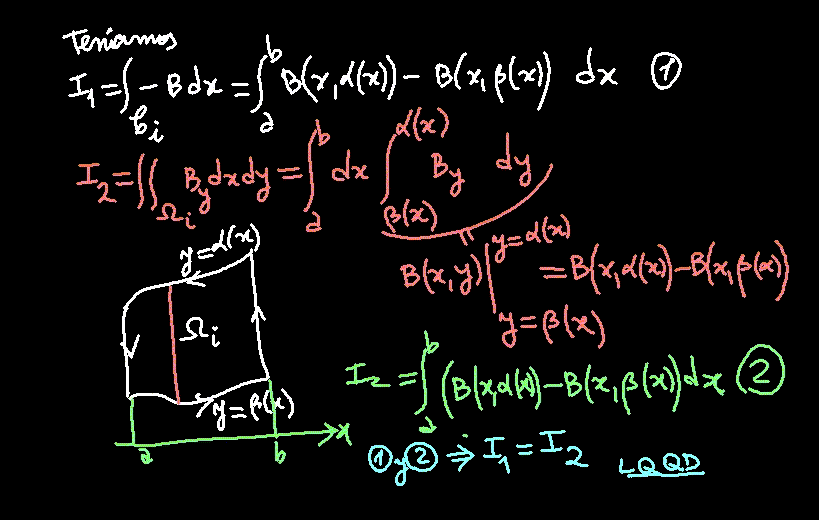 Teníamos
I₁ = ∫_{𝒞i} −B dx = ∫_a^b B(x, α(x)) − B(x, β(x)) dx ①
I₂ = ∬_{Ωi} B_y dx dy = ∫_a^b dx ∫_{β(x)}^{α(x)} B_y dy
B(x, y) |_{y = β(x)}^{y = α(x)} = B(x, α(x)) − B(x, β(x))
y = α(x)
Ωi
y = β(x)
x
a b
I₂ = ∫_a^b (B(x, α(x)) − B(x, β(x))) dx ②
① y ② ⇒ I₁ = I₂ LQQD